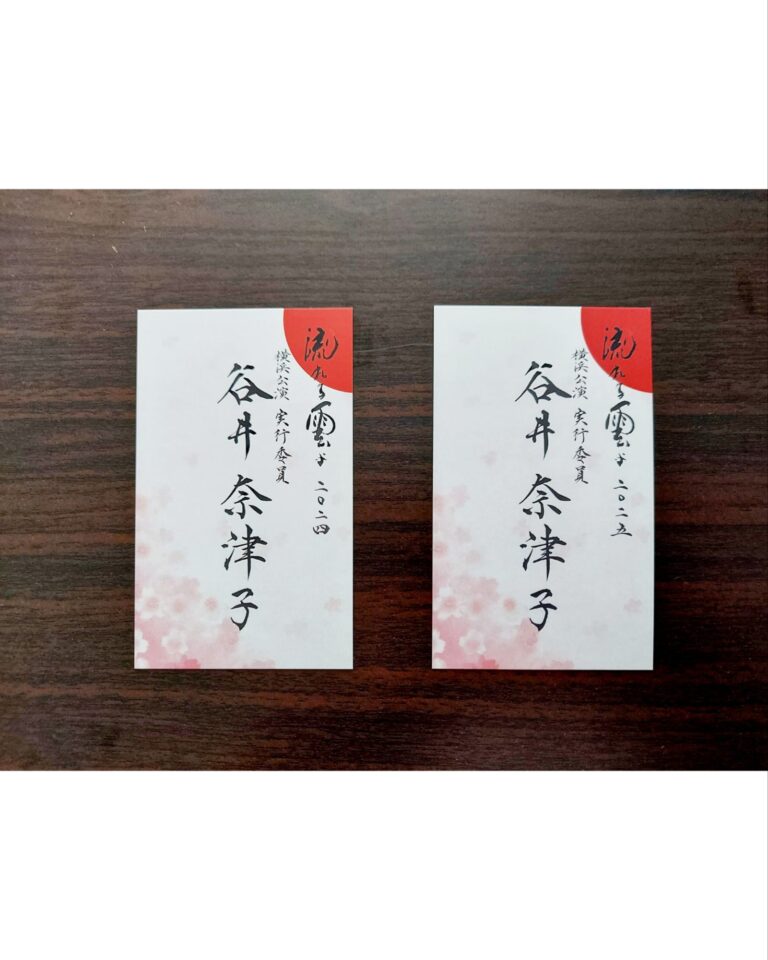 流れる雲よ 二〇二四
横浜公演 実行委員
谷井 奈津子
流れる雲よ 二〇二五
横浜公演 実行委員
谷井 奈津子